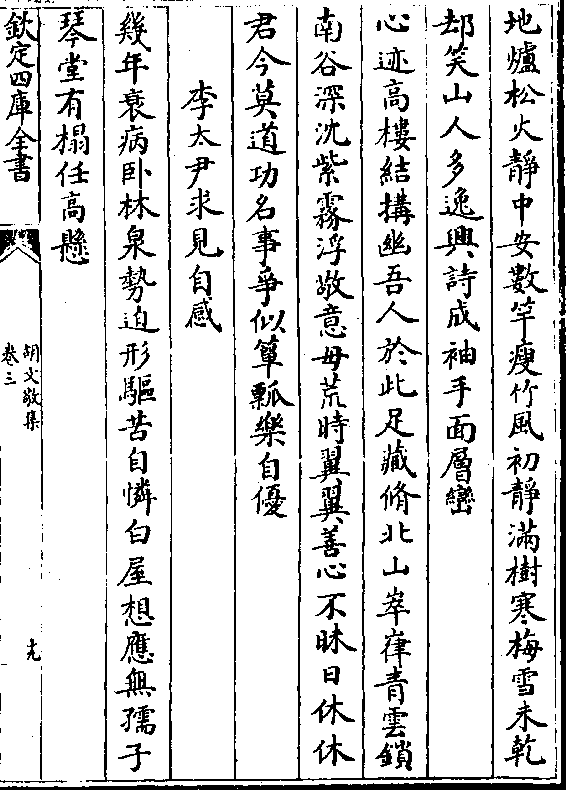 地爐松火靜中安數竿瘦竹風初靜滿樹寒梅雪未乾
却笑山人多逸興詩成袖手面層巒
心迹高樓結搆幽吾人於此足藏脩北山崒嵂青雲鎖
南谷深沈紫霧浮敬意毋荒時翼翼善心不昧日休休
君今莫道功名事爭似簞瓢樂自優
李太尹求見自感
幾年衰病卧林泉勢迫形驅苦自憐白屋想應無孺子
琴堂有榻任高懸
欽定四庫全書
胡文敬集
卷三
十九